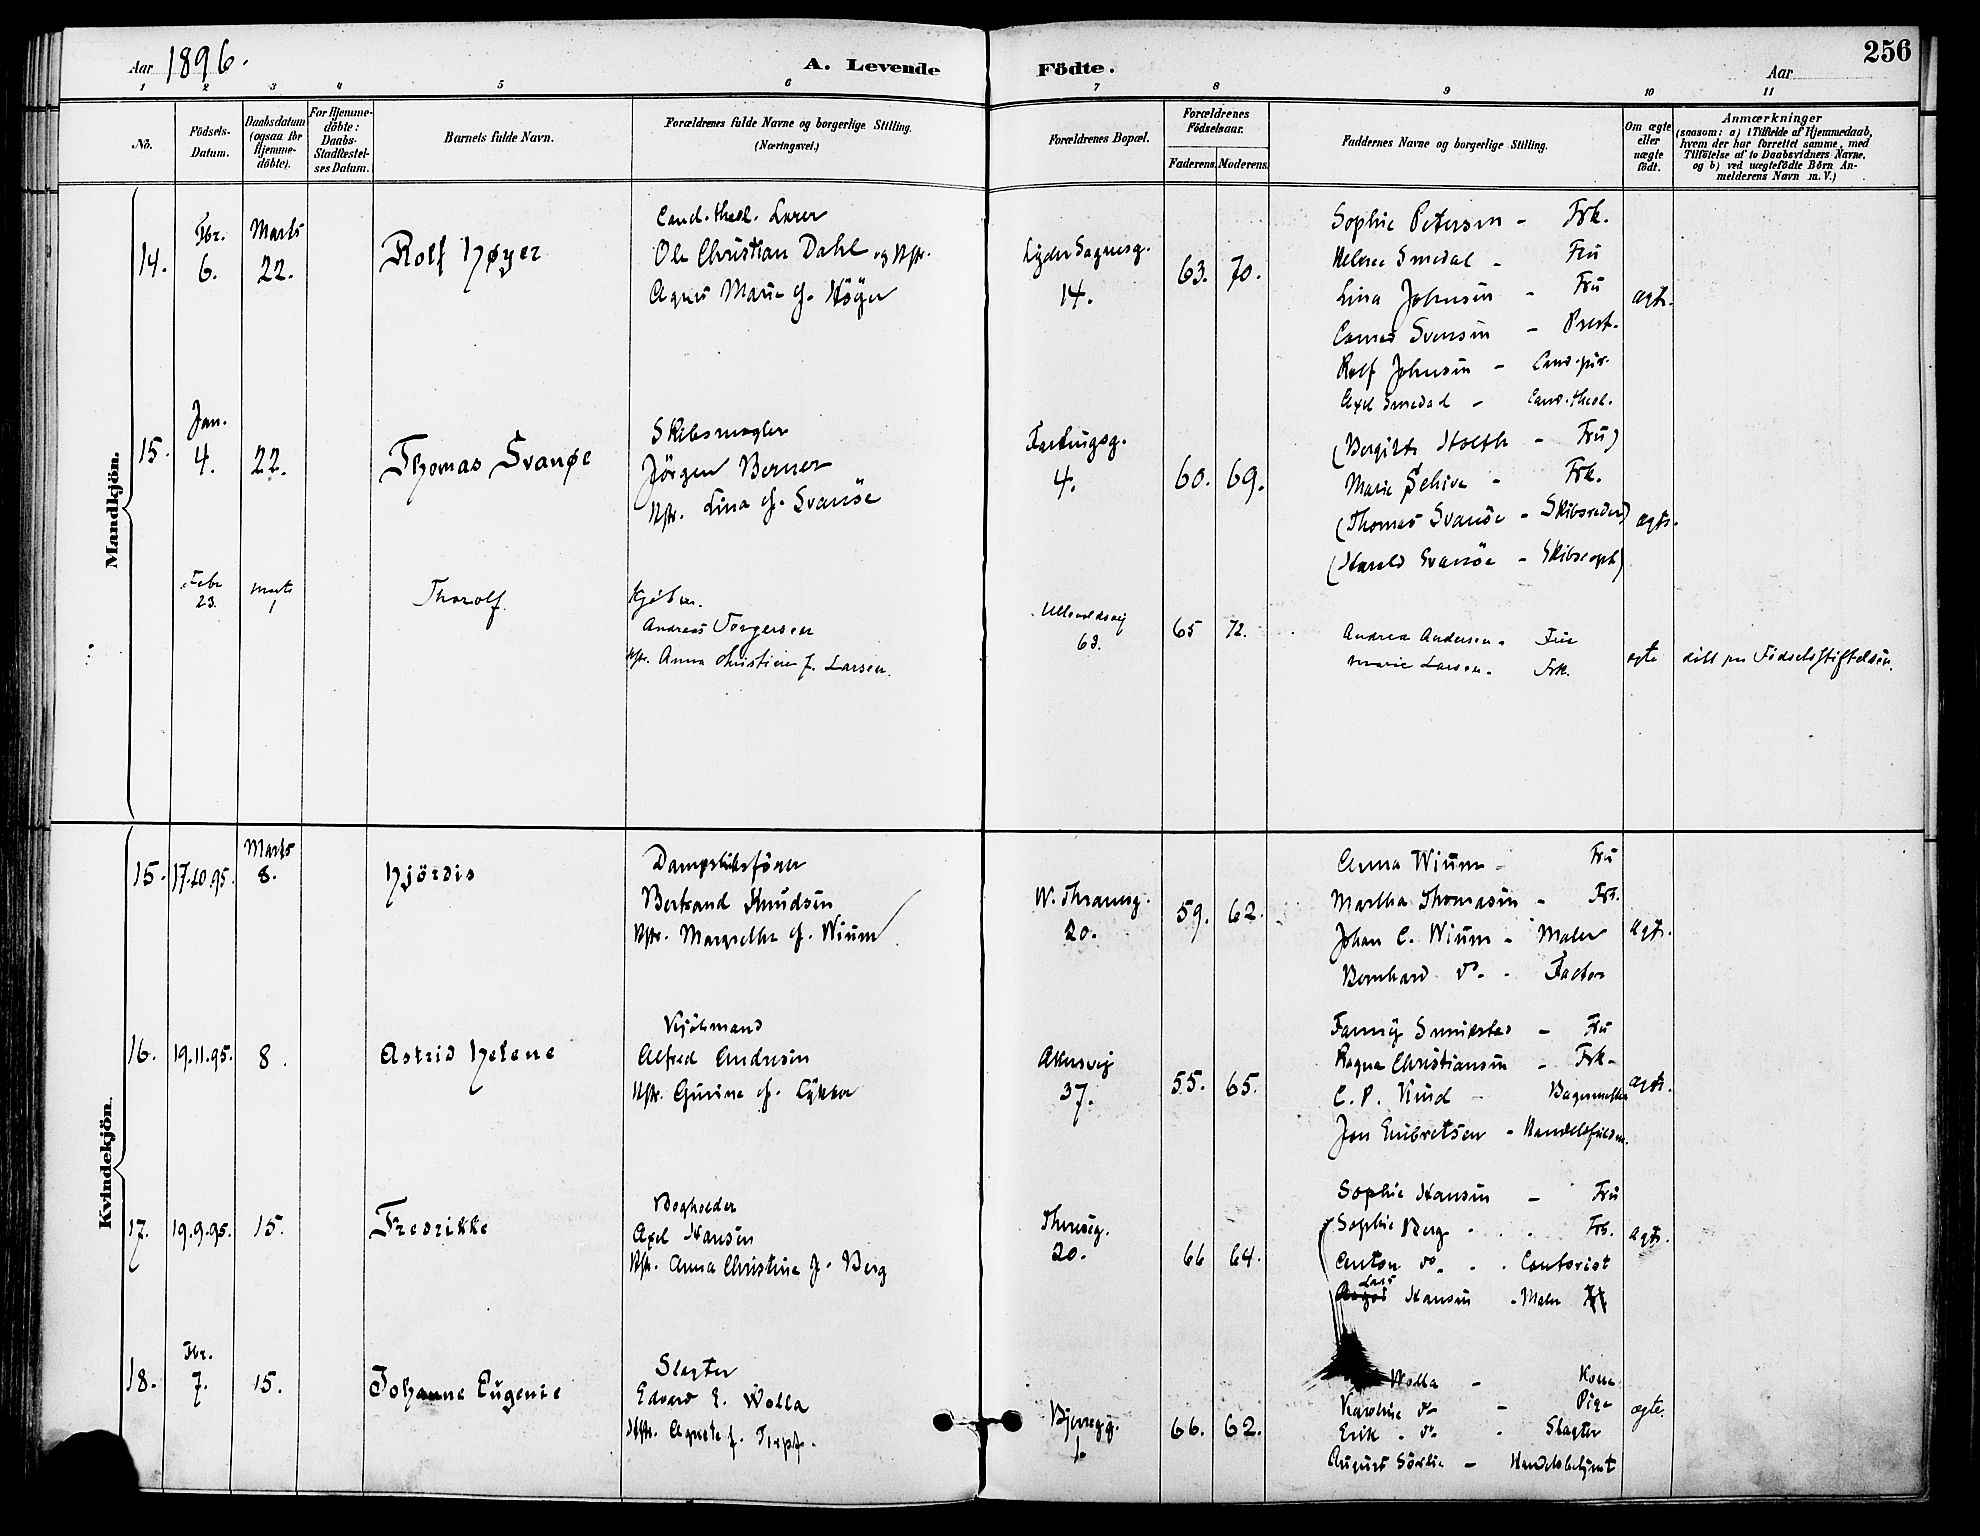 Aar 1896.
A. Levende Födte.
Aar
256
1 2 3 4 5 6 7 8 9 10 11
No.
Födsels-Datum.
Daabsdatum (ogsaa for Hjemme-döbte).
For Hjemme-döbte: Daabs-Stadfæstel-ses Datum.
Barnets fulde Navn.
Forældrenes fulde Navne og borgerlige Stilling.
(Næringsvei.)
Forældrenes Bopæl.
Forældrenes Födselsaar.
Faderens. Moderens.
Faddernes Navne og borgerlige Stilling.
Om ægte eller uægte födt.
Anmærkninger
(saasom: a) i Tilfælde af Hjemmedaab,
hvem der har forrettet samme, med
Tilföielse af to Daabsvidners Navne,
og b) ved uægtefödte Börn An-
melderens Navn m. V.)
Mandkjön.
14.
Fbr.
6.
Marts
22.
Rolf Høyer
Cand. theol. Lærer
Ole Christian Dahl og Hstr.
Agnes Marie f. Höyer
Lyder Sagensg.
14.
63. 70.
Sophie Petersen - Frk.
Helene Smedal - Fru
Lina Johnsen - Fru
Conrad Svensen - Prest.
Rolf Johnsen - Cand. jur.
Axel Smedal - Cand. theol.
ægte.
15.
Jan.
4.
22.
Thomas Svanøe
Skibsmægler
Jörgen Berner
Hstr. Lina f. Svanöe
Fastingsg.
4.
60. 69.
(Bergitte Holth - Fru)
Marie Schive - Frk.
(Thomas Svanöe - Skibsreder)
(Harald Svanöe - Skibscapt)
ægte.
Febr
23.
Marts
1
Tharolf.
Kjøbm.
Andreas Torgersen
Hstr. Anna Christine f. Larsen.
Ullevoldsvej
63.
65 72.
Andrea Andersen. Frue
Marie Larsen. Frk.
ægte
döbt paa Födselsstiftelsen.
Kvindekjön.
15.
17.10.95.
Marts
8.
Hjördis
Dampskibsförer
Bertrand Knudsen
Hstr. Margrethe f. Wium
W. Thranesg.
20.
59. 62.
Anna Wium - Fru
Martha Thomasen - Frk.
Johan C. Wium - Maler
Bernhard do. - Factor
ægte.
16.
19.11.95.
8.
Astrid Helene
Kjöbmand
Alfred Andresen
Hstr. Gurine f. Lykke
Akersvej
37.
55. 65.
Fanny - Fru
Ragna Christiansen - Frk.
C. P. Kind - Bagermester
Jon Embretsen - Handelsfuldm.
ægte.
17.
19.9.95.
15.
Fredrikke
Bogholder
Axel Hansen
Hstr. Anna Christine f. Berg
Theresg.
20.
66 64.
Sophie Hansen - Fru
Sophie Berg - Frk.
Anton do. - Contorist
Lars Hansen - Maler
ægte.
18.
Fbr.
7.
15.
Johanne Eugenie
Slagter
Edvard E. Wolla
Hstr. Agnete f.
Bjerregg.
1.
66. 62.
Wolla - Kone
Karoline do - Pige
Erik - do - Slagter
August Sörlie - Handelsbetjent
ægte.